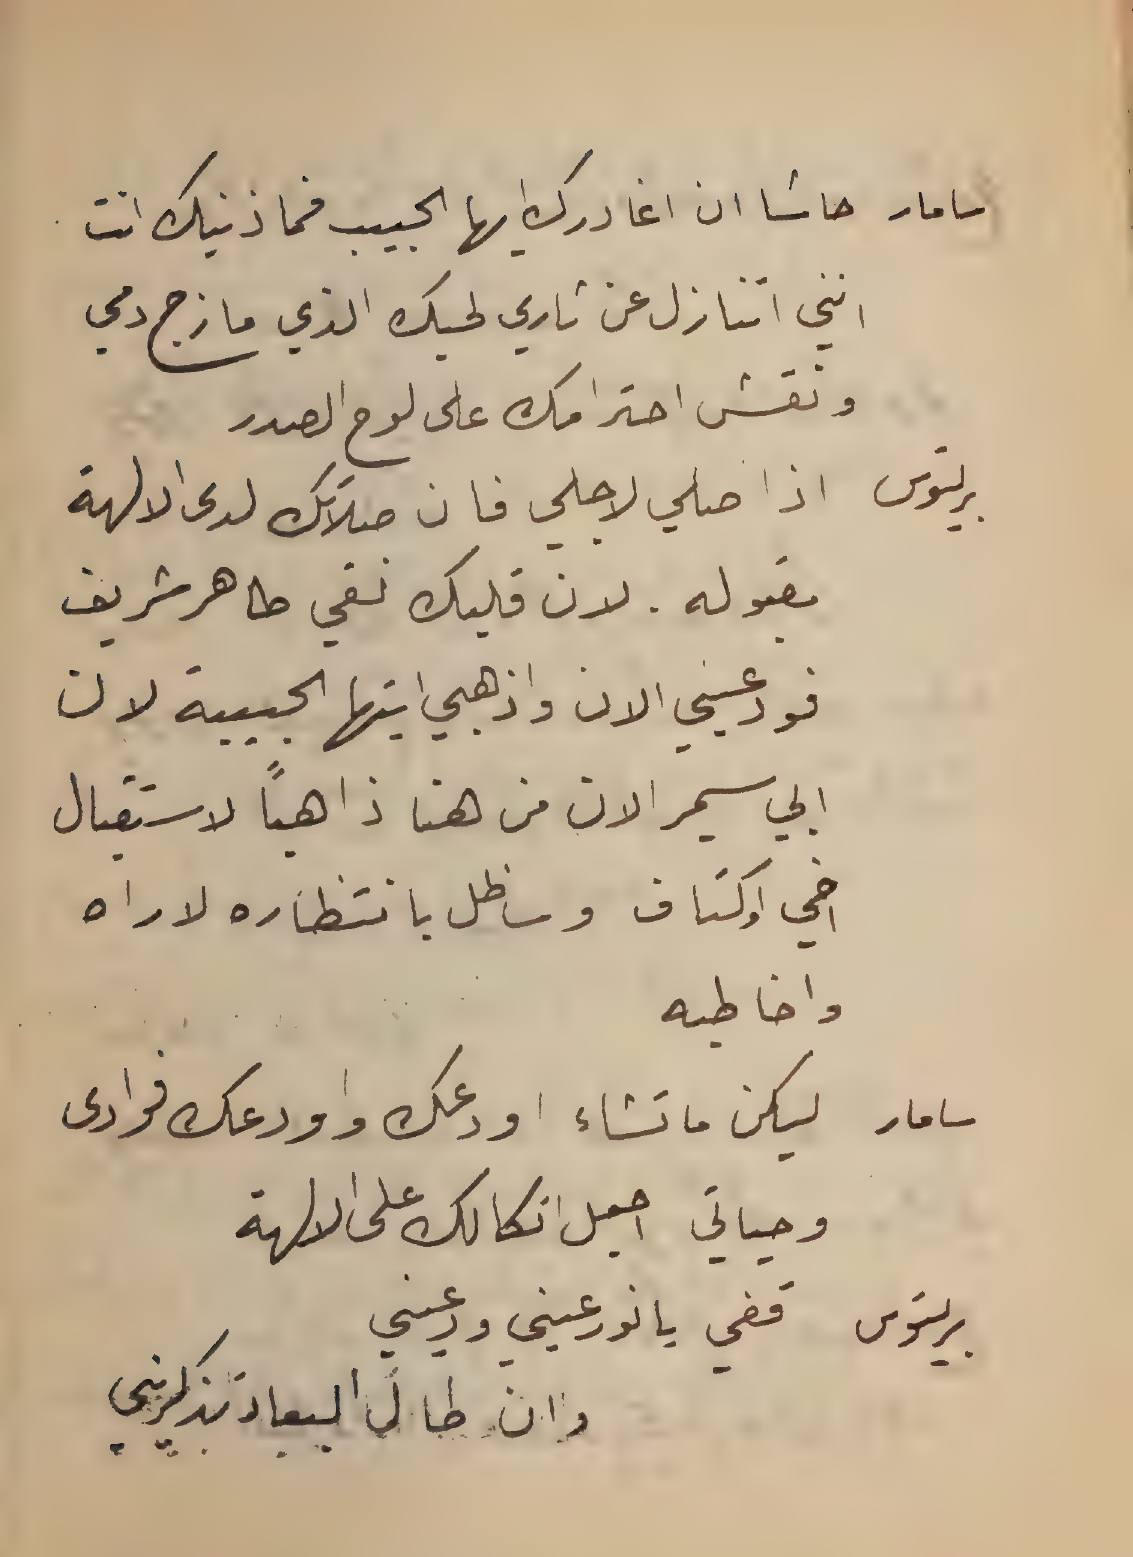 سامار حاشا ان اغادرك ايها الحبيب فما ذنبك انت
انني اتنازل عن ثاري لحبك الذي مازج دمي
ونقش احترامك على لوح الصدر
بريتوس اذا صلي لاجلي فان صلاتك لدى الالهة
مقبوله . لان قلبك نقي طاهر شريف
فودعيني الان واذهبي ايتها الحبيبة لان
ابي سيمر الان من هنا ذاهباً لاستقبال
اخي اوكتاف وساظل بانتظاره لاراه
واخاطبه
سامار ليكن ما تشاء اودعك واودعك فوادى
وحياتي اجعل اتكالك على الالهة
بريتوس قفي يا نور عيني ودعيني
وان طال البعاد تذكريني